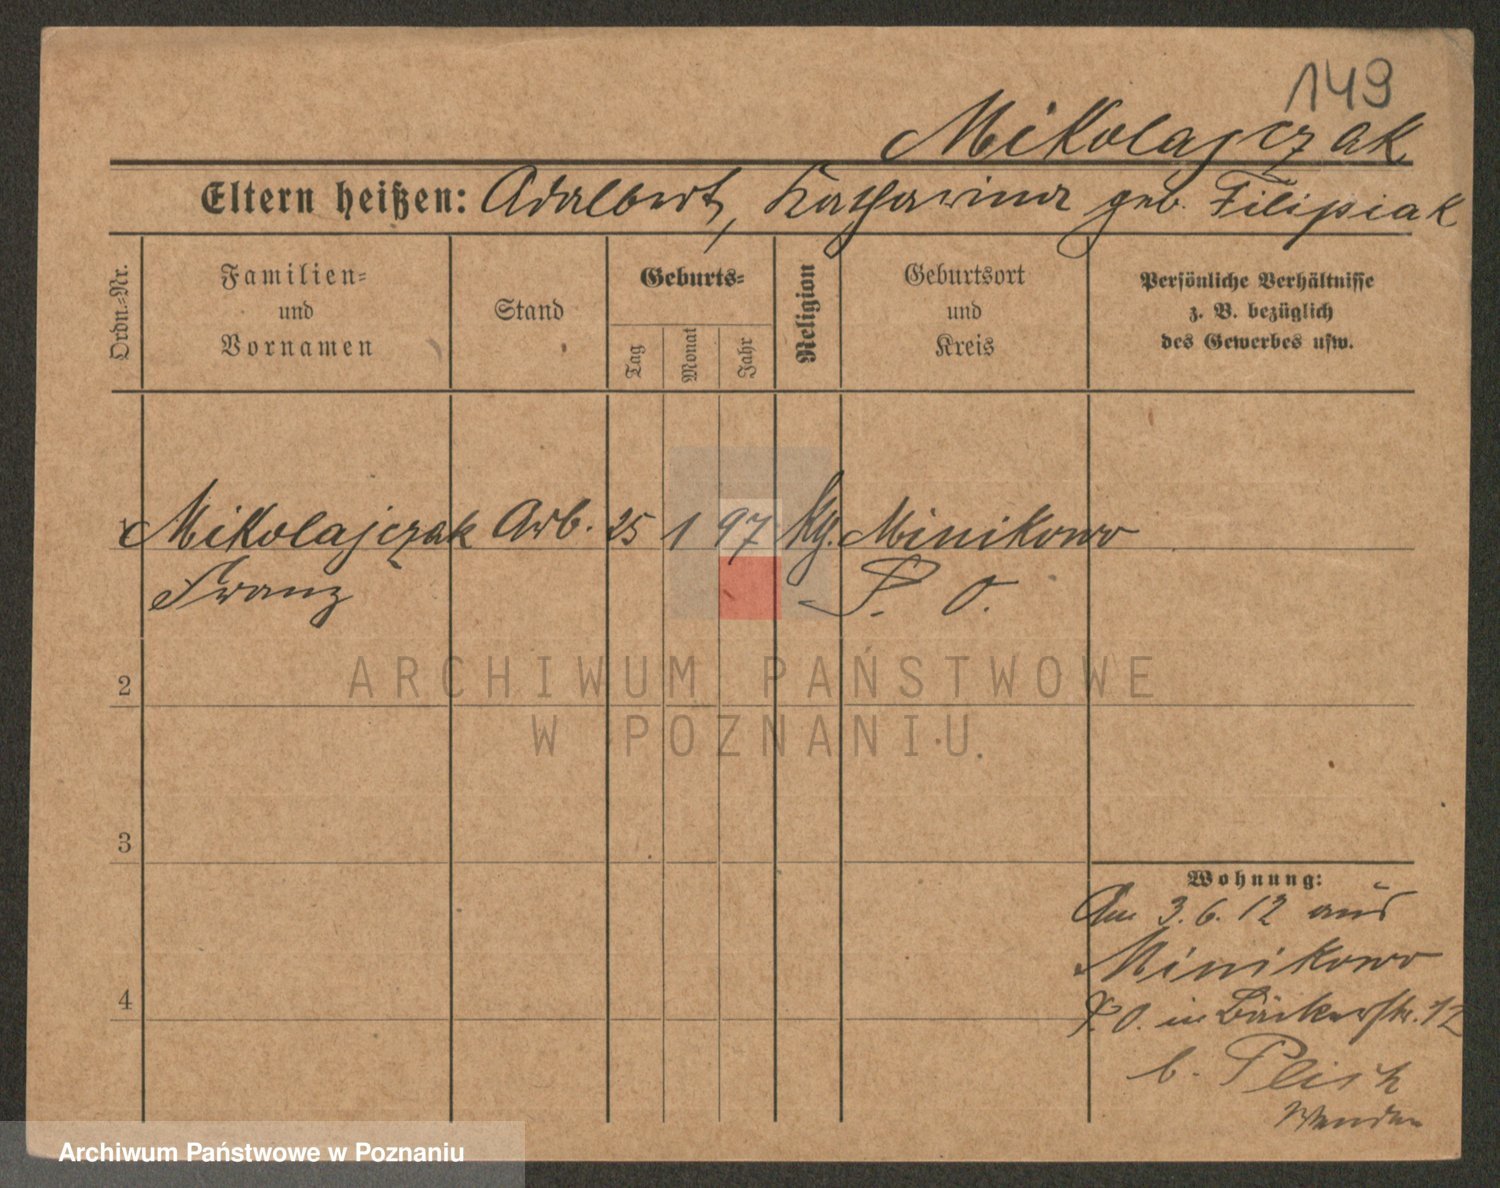 149
Mikolajczak
Eltern heißen: Adalbert, Katharina geb. Filipiak
Ordn.-Nr.
Familien-
und
Vornamen
Stand
Geburts-
Tag
Monat
Jahr
Religion
Geburtsort
und
Kreis
Persönliche Verhältnisse
z. B. bezüglich
des Gewerbes usw.
1 Mikolajczak Arb. 25 1 97 kg. Minikowo
Franz P. O.
2
3
4
Wohnung:
Am 3.6.12 aus
Minikowo
P.O. in Bäckerstr. 12
b. Plisch
Wenden
ARCHIWUM PAŃSTWOWE
W POZNANIU
Archiwum Państwowe w Poznaniu